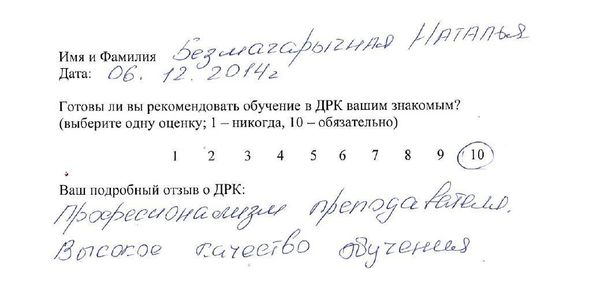 Имя и Фамилия Безмагарычная Наталья
Дата: 06. 12. 2014г
Готовы ли вы рекомендовать обучение в ДРК вашим знакомым?
(выберите одну оценку; 1 – никогда, 10 – обязательно)
1 2 3 4 5 6 7 8 9 10
Ваш подробный отзыв о ДРК:
Професионализм преподавателя.
Высокое качество обучения